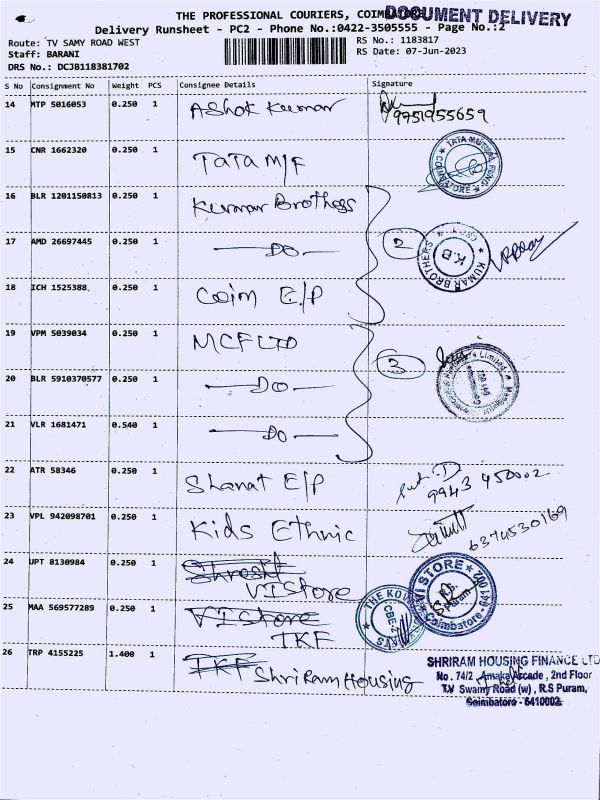 THE PROFESSIONAL COURIERS, COIMBATORE
DOCUMENT DELIVERY
Delivery Runsheet - PC2 - Phone No.:0422-3505555 - Page No.:2
Route: TV SAMY ROAD WEST
RS No.: 1183817
Staff: BARANI
RS Date: 07-Jun-2023
DRS No.: DCJB118381702
S No Consignment No Weight PCS Consignee Details Signature
14 MTP 5016053 0.250 1 Ashok Kumar
9751955659
15 CNR 1662320 0.250 1 TATA M/F
TATA MUTUAL FUND COIMBATORE
16 BLR 1201150813 0.250 1 Kumar Brothers
17 AMD 26697445 0.250 1 — DO — 2
KUMAR BROTHERS K.B
18 ICH 1525388 0.250 1 Coim E/P
19 VPM 5039034 0.250 1 MCF LTD
20 BLR 5910370577 0.250 1 — DO — 3
Limited
21 VLR 1681471 0.540 1 — DO —
22 ATR 58346 0.250 1 Sharat E/P
9943 450002
23 VPL 942098701 0.250 1 Kids Ethnic
6374530169
24 UPT 8130984 0.250 1 VI Store
VI STORE R.S. Puram Coimbatore 641 002
25 MAA 569577289 0.250 1 VI Store
TKF
THE CBE-2
26 TRP 4155225 1.400 1 TKF Shriram Housing
SHRIRAM HOUSING FINANCE LTD
No. 74/2 Arcade, 2nd Floor
T.V Swamy Road (w), R.S Puram,
Coimbatore - 6410002.